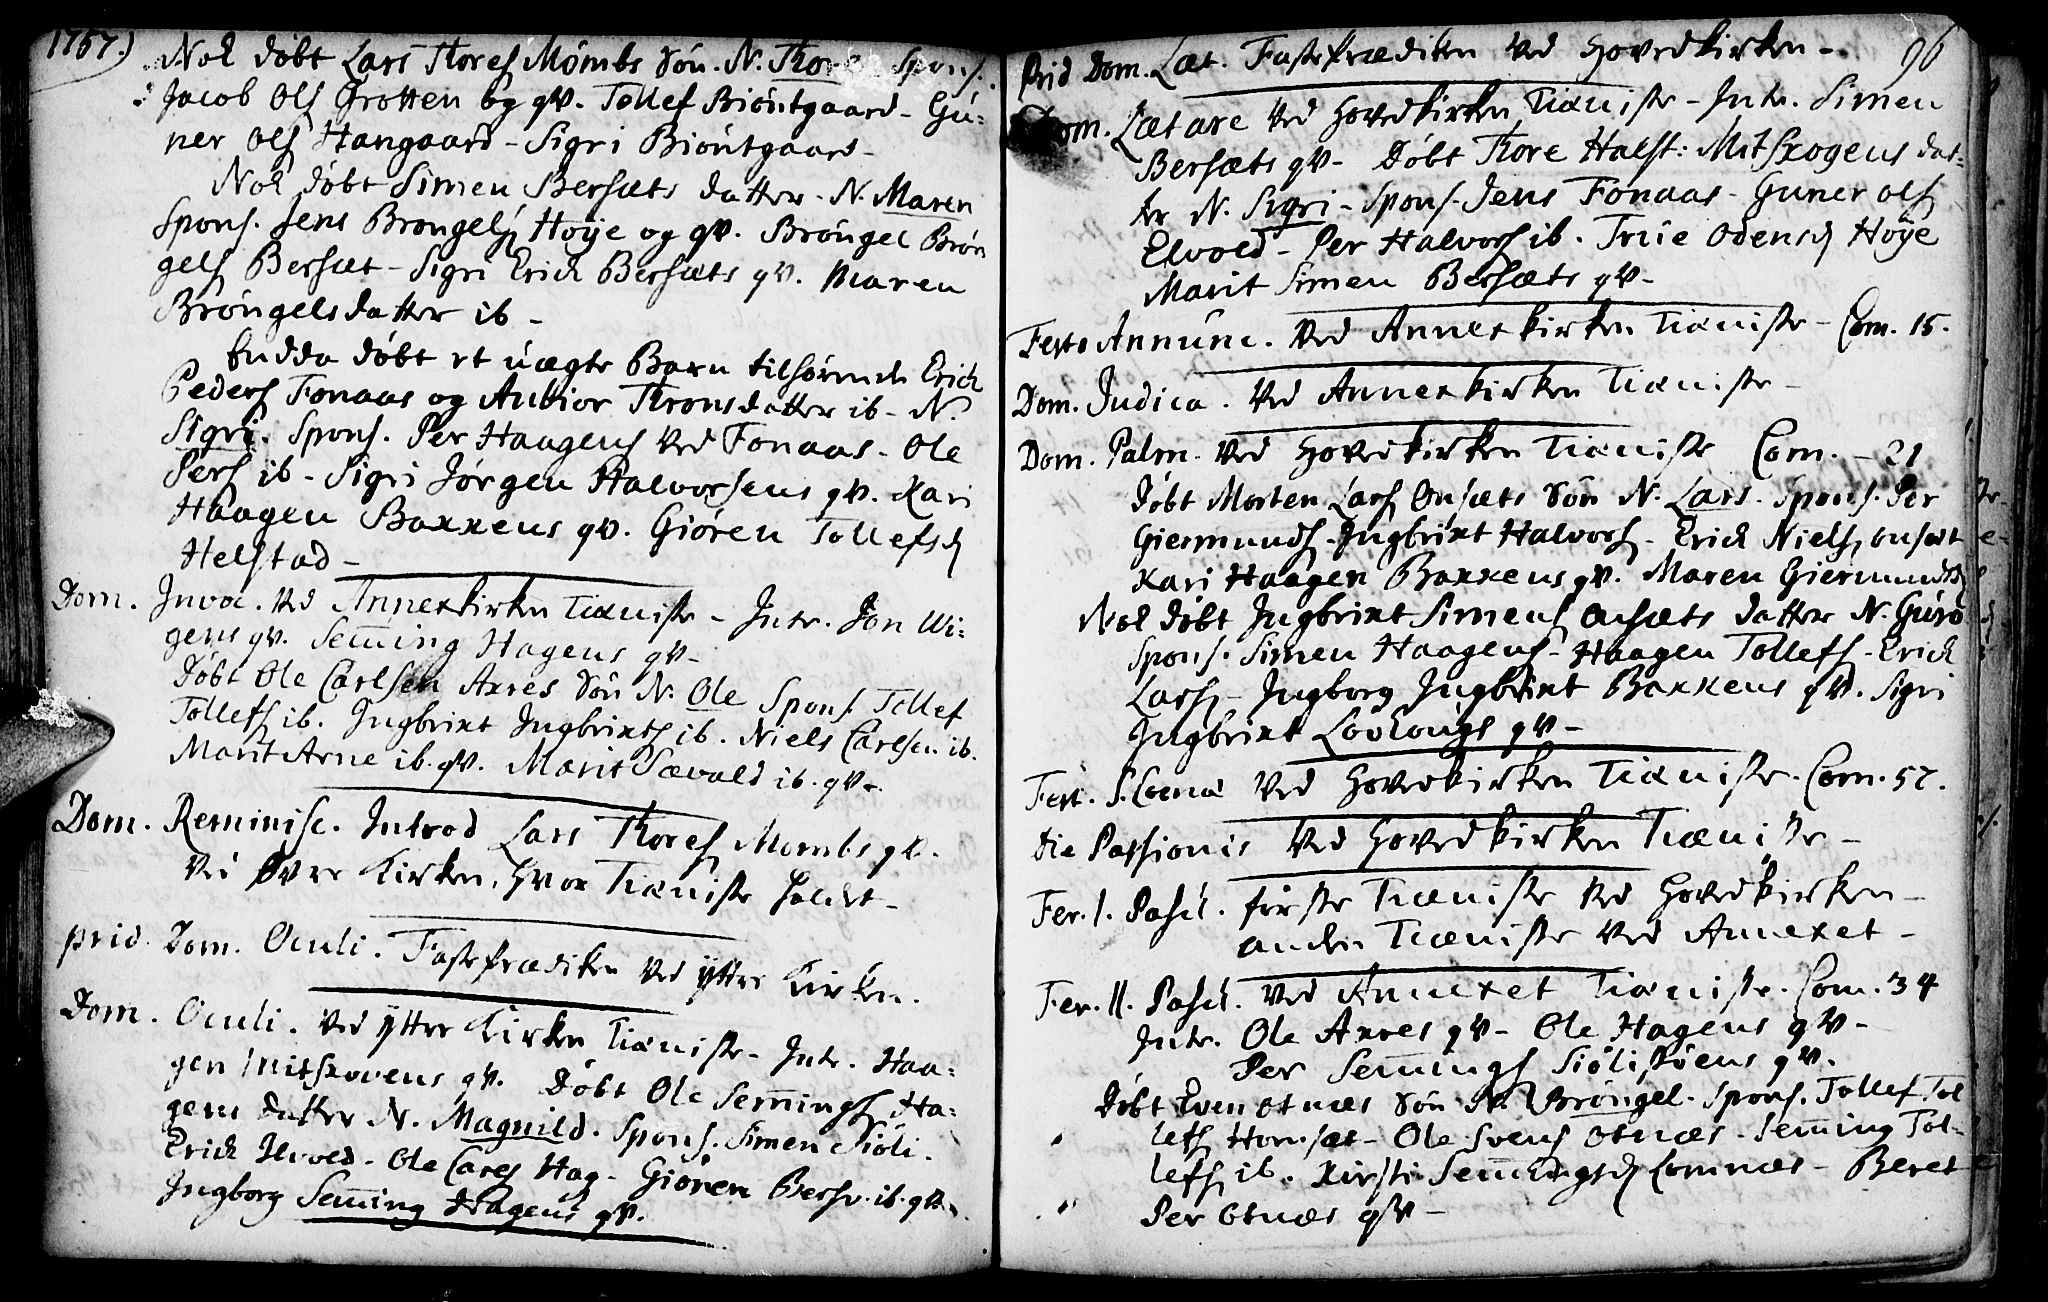 1757.)
Nok døbt Lars Thores Mømbs Søn. N. Thore Spons.
Jacob Ols Grøtten og qv. Tollef Biøntgaard - Gu:
ner Ols Hangaard - Sigri Biøntgaard -
Nok døbt Simen Bersæts datter - N. Maren
Spons. Jens Brøngels Høÿe og qv. Brøngel Brøn
gels Bersæt - Sigri Erich Bersæts qv. Maren
Brøngelsdatter ib -
Endda døbt et uægte Barn tilhørende Erich
Peders Fonaas og Anbior Thronsdatter ib - N.
Sigri. Spons. Per Haagens ved Fonaas - Ole
Pers ib - Sigri Jørgen Halvorsens qv. Kari
Haagen Baxxens qv. Giøren Tollefsd
Helstad -
Dom. Invoc. ved Annexkirken Tieniste - Intr. Jon Wi:
gens qv. Semming Hagens qv -
Døbt Ole Carlsen Axres Søn N. Ole Spons Tollef
Tollefs ib. Ingbrixt Ingbrixts ib. Niels Carlsen ib.
Marit Arne ib. qv. Marit Sævald ib. qv -
Dom. Reminisc. Introd Lars Thores Mombs qv.
ved Øvre Kirken, hvor Tieniste holdt -
prid. Dom. Oculi. Fasteprædiken ved ÿttre Kirken.
Dom. Oculi. ved ÿttre Kirken Tieniste - Intr. Haa:
gen Mitskovens qv. Døbt Ole Semmings Ha:
gens datter N. Magnild. Spons. Simen Siøli.
Erich Elvold - Ole Cares Hag - Giøren Bersv. ib. qv.
Ingborg Semming Hagens qv.
96
Prid Dom. Læt. Fasteprædiken ved Hovedkirken -
Dom. Lætare ved Hovedkirken Tieniste - Intr. Simen
Bersæts qv - Døbt Thore Halst: Mitskogens dat:
ter N. Sigri - Spons. Jens Fonaas - Guner Ols
Elvold - Per Halvors ib. Trúe Odensd Høÿe
Marit Simen Bersæts qv -
Festo Annunc. ved Annexkirken Tieniste - Com. 15.
Dom. Judica. ved Annexkirken Tieniste -
Dom. Palm. ved Hovedkirken Tieniste Com. - 21
Døbt Morten Lars Onsæts Søn N. Lars. Spons. Per
Giermunds - Ingbrixt Halvors - Erich Niels, onsæt
Kari Haagen Baxxens qv. Maren Giermundsd
Nok døbt Ingbrixt Simens Onsæts datter N. Guro
Spons. Simen Haagens - Haagen Tollefs - Erich
Lars - Ingborg Ingbrixt Baxxens qv. Sigri
Ingbrixt qv -
Fest. S. Coenæ ved Hovedkirken Tieniste. Com. 57.
Die Passionis ved Hovedkirken Tieniste -
Fer. 1. Pasch. første Tieniste ved Hovedkirken -
anden Tieniste ved Annexet -
Fer. II. Pasch. ved Annexet Tieniste. Com. 34
Intr. Ole Axres qv - Ole Hagens qv -
Per Semmings Siølistøens qv.
Døbt Even Otnæs Søn N. Brøngel. Spons. Tollef Tol
lefs Hornsæt - Ole Svens Otnæs - Semming Tol-
lefs ib. Kirsti Semmingsd Lomnæs - Beret
Per Otnæs qv -